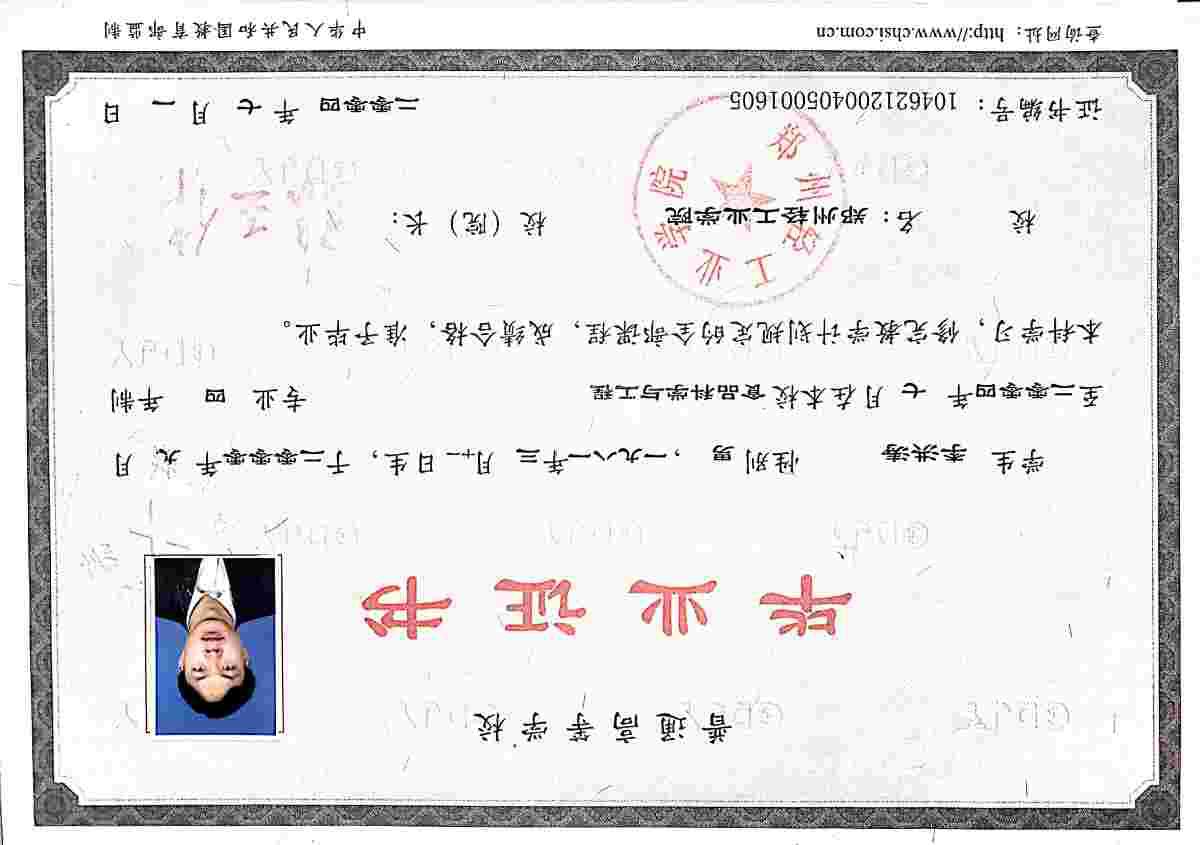 普通高等学校
毕业证书
学生 李洪涛 性别 男 ，一九八一年三 月十一 日生，于二零零零年 九 月
至二零零四年 七 月在本校 食品科学与工程 专业 四 年制
本科学习，修完教学计划规定的全部课程，成绩合格，准予毕业。
校 名：郑州轻工业学院 校（院）长：
郑州轻工业学院
证书编号：104621200405001605 二零零四 年 七 月 一 日
查询网址：http://www.chsi.com.cn 中华人民共和国教育部监制